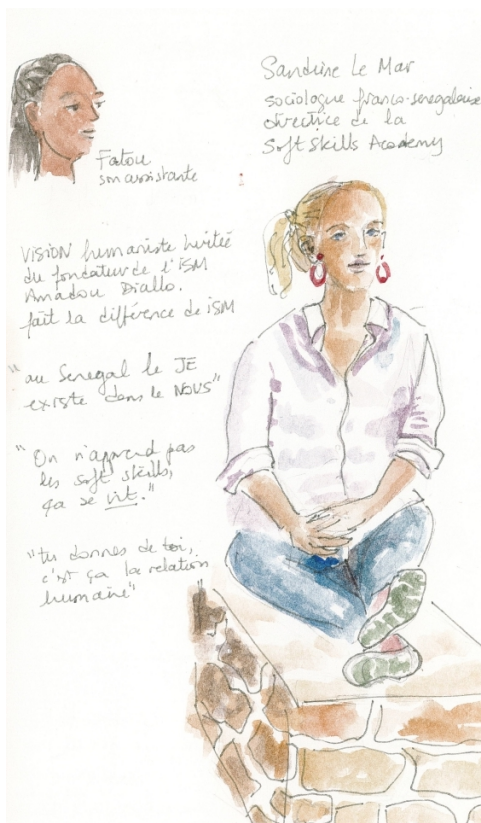 Sandrine Le Mar
sociologue franco-senegalaise
directrice de la
Soft Skills Academy
Fatou
son assistante
VISION humaniste héritée
du fondateur de l'ISM
Amadou Diallo.
fait la différence de ISM
"au Senegal le JE
existe dans le NOUS"
"On n'apprend pas
les soft skills,
ça se vit."
"tu donnes de toi,
c'est ça la relation
humaine"